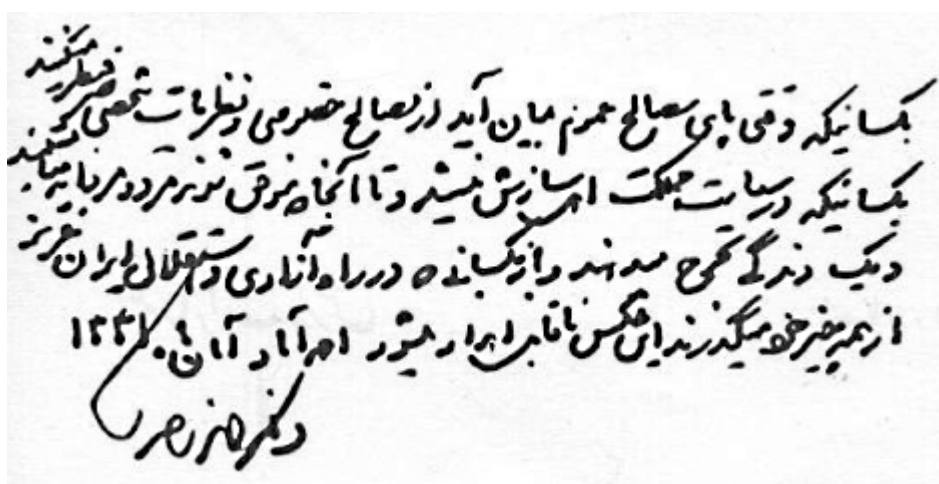 بکسانیکه وقتی پای مصالح عموم بمیان آید از مصالح خصوصی و نظریات شخصی صرفنظر میکنند
بکسانیکه در سیاست مملکت اهل سازش نیستند و تا آنجا که موفق شوند مرد و مردانه میایستند
و یک دندگی بخرج میدهند و باز بکسانیکه در راه آزادی و استقلال ایران عزیز
از همه چیز خود میگذرند این عکس ناقابل اهدا میشود احمدآباد آبان ماه
دکتر محمد مصدق